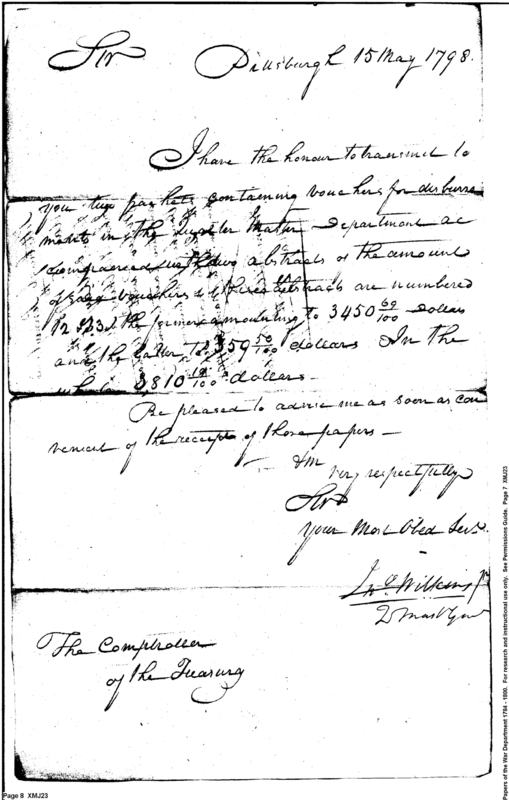 Sir Pittsburgh 15 May 1798.
I have the honour to transmit to
you two packets containing vouchers for disburse
ments in the Quarter Master Department ac
companied with two abstracts of the amount
of vouchers abstracts are numbered
12 & 23, the former amounting to 3450 69/100 Dollars
and the latter to 359 50/100 dollars In the
whole 3810 19/100 dollars.
Be pleased to advise me as soon as con
venient of the receipt of those papers —
I am
very respectfully
Sir
your Most Obed Serv.
Jno. Wilkins Jr
Q Mast Gen
The Comptroller
of the Treasury
Page 8 XMJ23
Papers of the War Department 1784 - 1800. For research and instructional use only. See Permissions Guide. Page 7 XMJ23